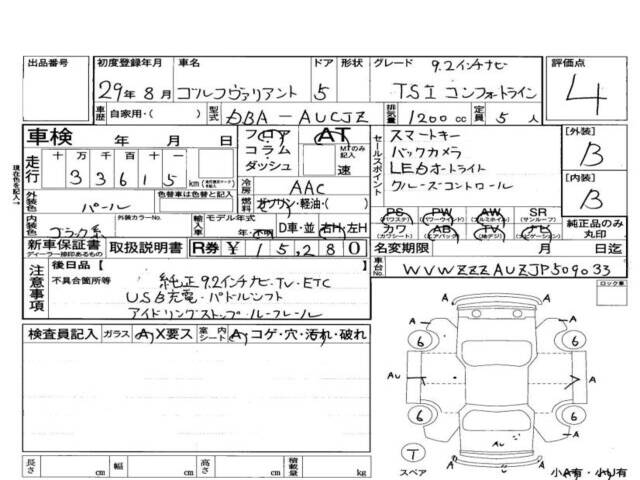 出品番号 初度登録年月 車名 ドア 形状 グレード 9.2インチナビ 評価点
29年8月 ゴルフヴァリアント 5 TSI コンフォートライン 4
車歴 自家用・( ) 型式 DBA-AUCJZ 排気量 1200cc 定員 5人
車検 年 月 日 フロア コラム ダッシュ AT MTのみ記入 速
セールスポイント スマートキー
バックカメラ
LEDオートライト
クルーズコントロール
[外装] B
[内装] B
現在色を記入→
走行 十 万 千 百 十 一
3 3 6 1 5 km
外装色 パール 色替車は色替と記入
冷房 AAC
燃料 ガソリン・軽油・( )
内装色 ブラック系 外装カラーNo. 輸入車 モデル年式 年・不明 D車・並 右H・左H
PS (パワステ) PW (パワーウインド) AW (アルミホイル) SR (サンルーフ)
カワ (カワシート) AB (エアバック) TV (地デジ) ナビ (ナビゲーション)
純正品のみ丸印
新車保証書 ディーラー捺印あるもの 取扱説明書 R券 ¥ 15,280
名変期限 月 日迄
車台No. WVWZZZAUZJP509033
注意事項 後日品 [ ]
不具合箇所等 純正9.2インチナビ・TV・ETC
USB充電・パドルシフト
アイドリングストップ・ルーフレール
ロック車
検査員記入 ガラス A X要ス 室内シート A コゲ・穴・汚れ・破れ
A A
6 6
A AU A A
6 6
AU
T
スペア A A
長さ cm 幅 cm 高さ cm 積載量 kg
小A有・小U有